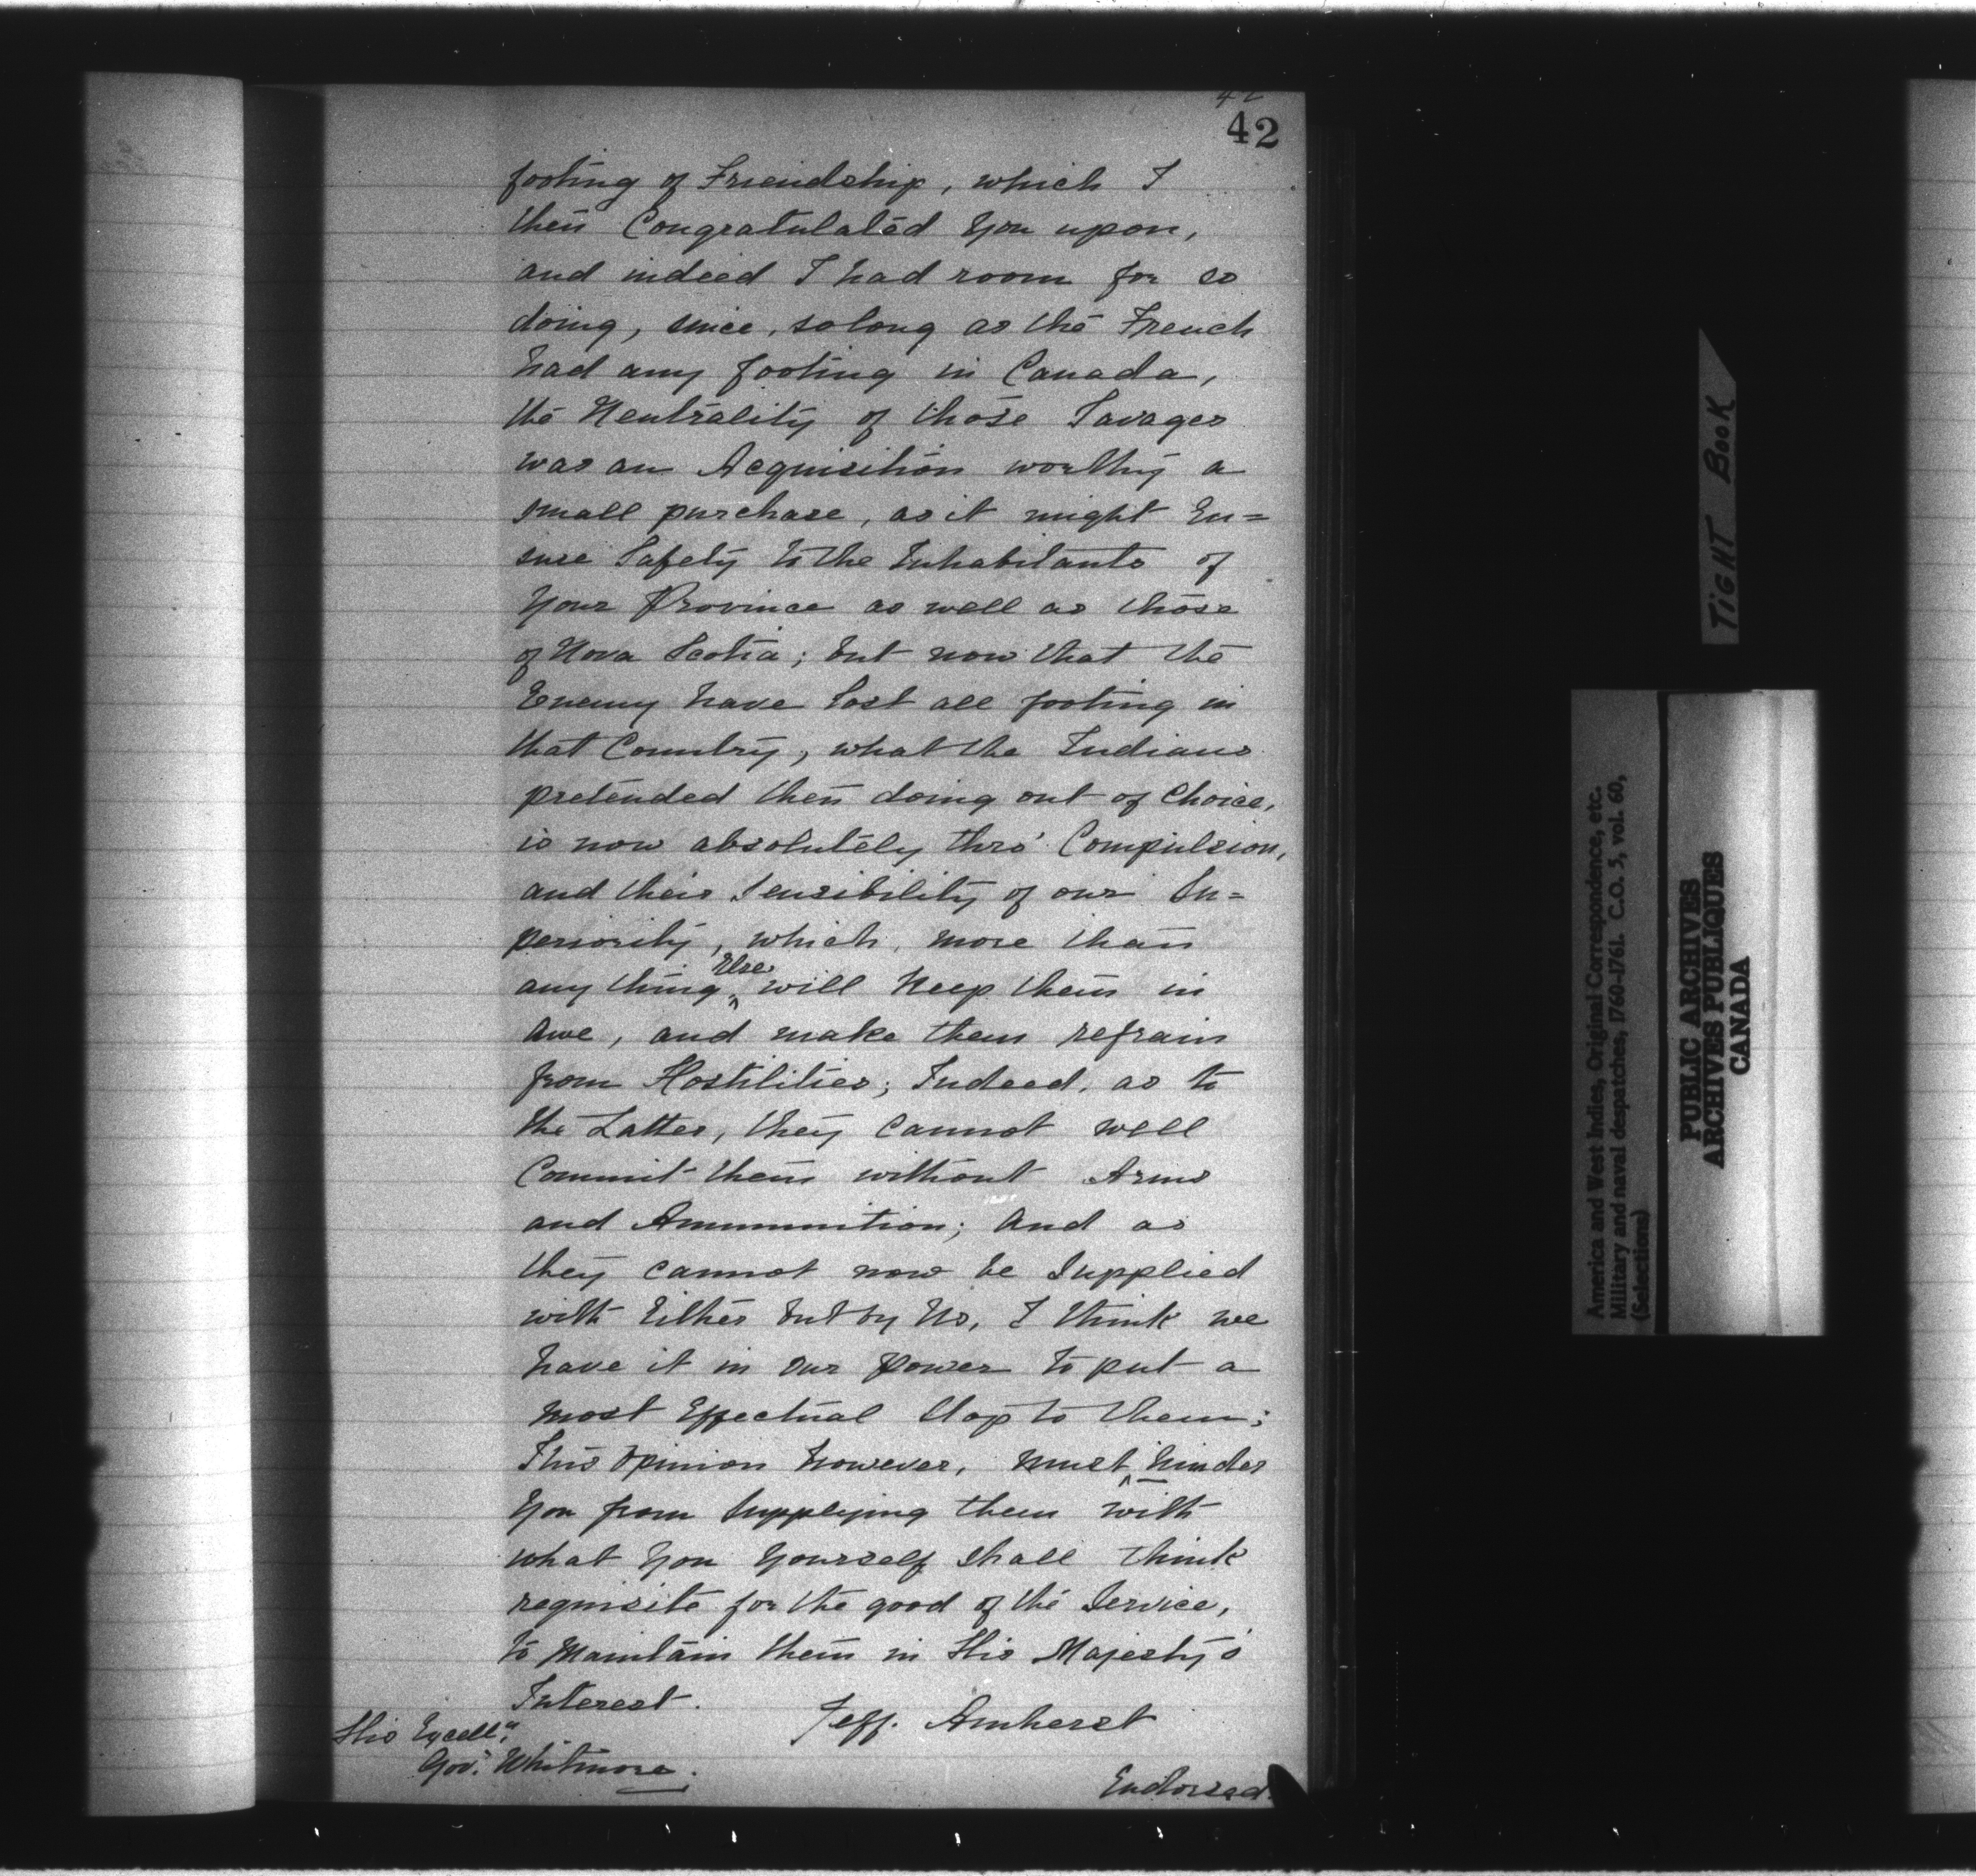 42
42
footing of Friendship, which I
then Congratulated You upon,
and indeed I had room for so
doing, since, so long as the French
had any footing in Canada,
the Neutrality of those Savages
was an Acquisition worthy a
small purchase, as it might En=
sure Safety to the Inhabitants of
Your Province as well as those
of Nova Scotia; but now that the
Enemy have lost all footing in
that Country, what the Indians
pretended then doing out of Choice,
is now absolutely thro' Compulsion,
and their Sensibility of our Su=
periority, which, more than
any thing Else will keep them in
Awe, and make them refrain
from Hostilities; Indeed, as to
the Latter, they cannot well
Commit them without Arms
and Ammunition; And as
they cannot now be Supplied
with Either but by Us, I think we
have it in our Power to put a
most Effectual Stop to them;
This Opinion however, must hinder
You from Supplying them with
what You Yourself shall think
requisite for the good of the Service,
to Maintain them in His Majesty's
Interest.
Jeff. Amherst
His Excell.cy
Gov.r Whitmore.
Endorsed.
TIGHT BOOK
America and West Indies, Original Correspondence, etc.
Military and naval despatches, 1760-1761. C.O. 5, vol. 60,
(Selections)
PUBLIC ARCHIVES
ARCHIVES PUBLIQUES
CANADA